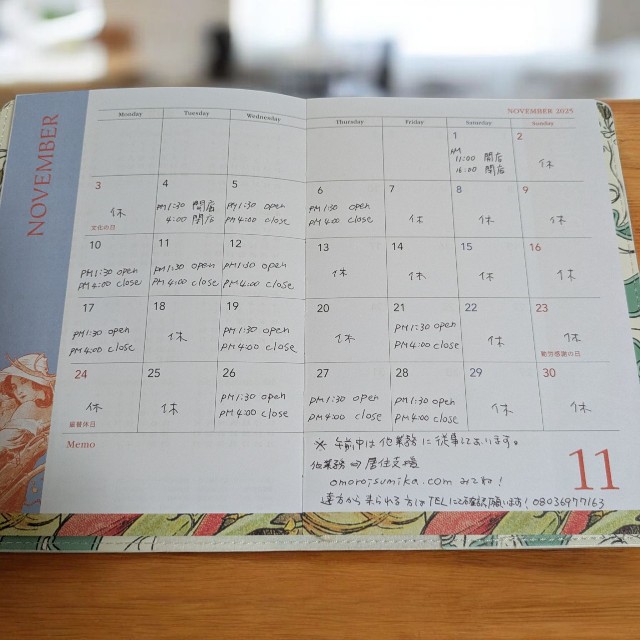 NOVEMBER
NOVEMBER 2025
Monday Tuesday Wednesday Thursday Friday Saturday Sunday
1 2
AM
11:00 開店
16:00 閉店
休
3 4 5 6 7 8 9
休
PM1:30 開店
4:00 閉店
PM1:30 open
PM4:00 close
PM1:30 open
PM4:00 close
休
休
休
文化の日
10 11 12 13 14 15 16
PM1:30 open
PM4:00 close
PM1:30 open
PM4:00 close
PM1:30 open
PM4:00 close
休
休
休
休
17 18 19 20 21 22 23
PM1:30 open
PM4:00 close
休
PM1:30 open
PM4:00 close
休
PM1:30 open
PM4:00 close
休
休
勤労感謝の日
24 25 26 27 28 29 30
休
振替休日
休
PM1:30 open
PM4:00 close
PM1:30 open
PM4:00 close
PM1:30 open
PM4:00 close
休
休
Memo
※ 午前中は他業務に従事しております。
他業務⇨居住支援
omoroisumika.com みてね!
遠方から来られる方はTELにてご確認願います! 08036977163
11